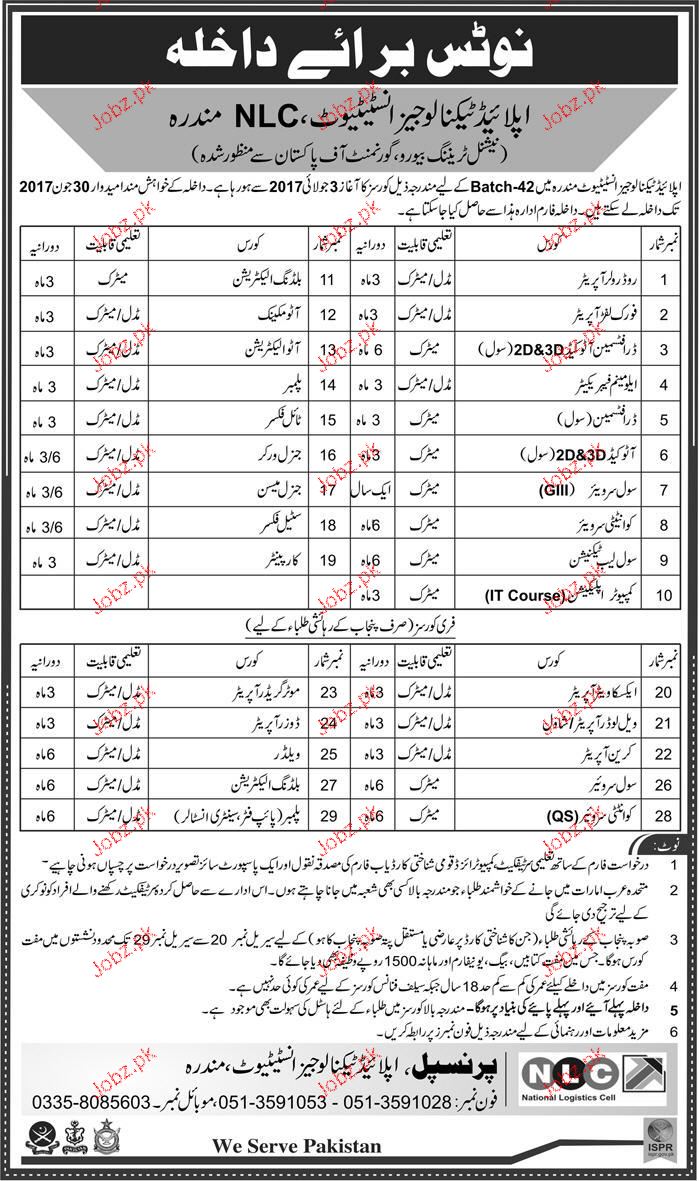 نوٹس برائے داخلہ
اپلائیڈ ٹیکنالوجیز انسٹیٹیوٹ، NLC مندرہ
(نیشنل ٹریننگ بیورو، گورنمنٹ آف پاکستان سے منظور شدہ)
اپلائیڈ ٹیکنالوجیز انسٹیٹیوٹ مندرہ میں Batch-42 کے لیے مندرجہ ذیل کورسز کا آغاز 3 جولائی 2017 سے ہو رہا ہے۔ داخلہ کے خواہش مند امیدوار 30 جون 2017
تک داخلہ لے سکتے ہیں۔ داخلہ فارم ادارہ ہذا سے حاصل کیا جا سکتا ہے۔
نمبر شمار کورس تعلیمی قابلیت دورانیہ نمبر شمار کورس تعلیمی قابلیت دورانیہ
1 روڈ رولر آپریٹر مڈل/میٹرک 3ماہ 11 بلڈنگ الیکٹریشن میٹرک 3ماہ
2 فورک لفٹر آپریٹر مڈل/میٹرک 3ماہ 12 آٹو مکینک مڈل/میٹرک 3ماہ
3 ڈرافٹسمین آٹو کیڈ 2D&3D (سول) میٹرک 6 ماہ 13 آٹو الیکٹریشن مڈل/میٹرک 3ماہ
4 ایلومینیم فیبریکیٹر مڈل/میٹرک 3 ماہ 14 پلمبر مڈل/میٹرک 3 ماہ
5 ڈرافٹسمین (سول) میٹرک 3 ماہ 15 ٹائل فکسر مڈل/میٹرک 3 ماہ
6 آٹو کیڈ 2D&3D (سول) میٹرک 3ماہ 16 جنرل ورکر مڈل/میٹرک 3/6 ماہ
7 سول سرویئر (GIII) میٹرک ایک سال 17 جنرل میسن مڈل/میٹرک 3/6 ماہ
8 کوانٹٹی سرویئر میٹرک 6ماہ 18 سٹیل فکسر مڈل/میٹرک 3/6 ماہ
9 سول لیب ٹیکنیشن میٹرک 6ماہ 19 کارپینٹر مڈل/میٹرک 3 ماہ
10 کمپیوٹر اپلیکیشن (IT Course) میٹرک 3ماہ
فری کورسز (صرف پنجاب کے رہائشی طلباء کے لیے)
نمبر شمار کورس تعلیمی قابلیت دورانیہ نمبر شمار کورس تعلیمی قابلیت دورانیہ
20 ایکسکاویٹر آپریٹر مڈل/میٹرک 3ماہ 23 موٹر گریڈر آپریٹر مڈل/میٹرک 3ماہ
21 ویل لوڈر آپریٹر/شاول مڈل/میٹرک 3ماہ 24 ڈوزر آپریٹر مڈل/میٹرک 3ماہ
22 کرین آپریٹر مڈل/میٹرک 3ماہ 25 ویلڈر مڈل/میٹرک 6ماہ
26 سول سروئیر میٹرک 6ماہ 27 بلڈنگ الیکٹریشن مڈل/میٹرک 6ماہ
28 کوانٹٹی سروئیر (QS) میٹرک 6ماہ 29 پلمبر (پائپ فٹر، سینٹری انسٹالر) مڈل/میٹرک 6ماہ
نوٹ:
1 درخواست فارم کے ساتھ تعلیمی سرٹیفکیٹ، کمپیوٹرائزڈ قومی شناختی کارڈ یا ب فارم کی مصدقہ نقول اور ایک پاسپورٹ سائز تصویر درخواست پر چسپاں ہونی چاہیے۔
2 متحدہ عرب امارات میں جانے کے خواہشمند طلباء جو مندرجہ بالا کسی بھی شعبہ میں جانا چاہتے ہوں۔ اس ادارے سے حاصل کردہ سرٹیفکیٹ رکھنے والے افراد کو نوکری
کے لیے ترجیح دی جائے گی
3 صوبہ پنجاب کے رہائشی طلباء (جن کا شناختی کارڈ پر عارضی یا مستقل پتہ صوبہ پنجاب کا ہو) کے لیے سیریل نمبر 20 سے سیریل نمبر 29 تک محدود نشستوں میں مفت
کورس ہوگا۔ جس میں مفت کتابیں، بیگ، یونیفارم اور ماہانہ 1500 روپے وظیفہ بھی دیا جائے گا۔
4 مفت کورسز میں داخلے کیلئے عمر کی کم سے کم حد 18 سال جبکہ سیلف فنانس کورسز کے لیے عمر کی کوئی حد نہیں ہے۔
5 داخلہ پہلے آئیے اور پہلے پائیے کی بنیاد پر ہوگا۔ مندرجہ بالا کورسز میں طلباء کے لئے ہاسٹل کی سہولت بھی موجود ہے۔
6 مزید معلومات اور رہنمائی کے لیے مندرجہ ذیل فون نمبرز پر رابطہ کریں۔
پرنسپل، اپلائیڈ ٹیکنالوجیز انسٹیٹیوٹ، مندرہ
فون نمبر: 051-3591028 - 051-3591053، موبائل نمبر: 0335-8085603
NLC
National Logistics Cell
We Serve Pakistan
ISPR
ispr.gov.pk
Jobz.pk